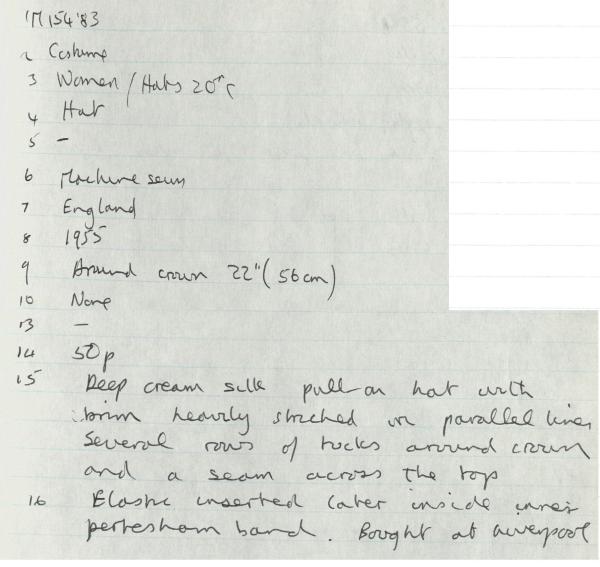 1 M154'83
2 Costume
3 Women / Hats 20thC
4 Hat
5 -
6 Machine sewn
7 England
8 1955
9 Around crown 22" (56cm)
10 None
13 -
14 50p
15 Deep cream silk pull-on hat with
brim heavily stiched in parallel lines
Several rows of tucks around crown
and a seam across the top
16 Elastic inserted later inside inner
petersham band. Bought at Liverpool